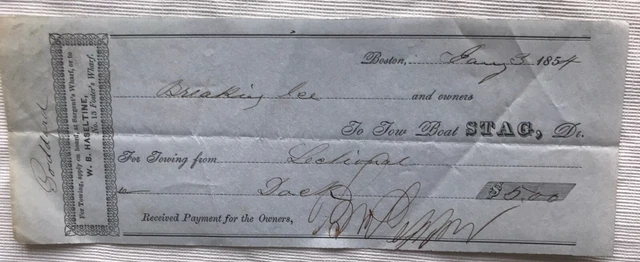 Goddard
For Towing, apply on board, at Sargent's Wharf, or to
W. B. HASELTINE,
No. 13 Foster's Wharf.
Boston, Jany 3 1854
Breaking Ice and owners
To Tow Boat STAG, Dr.
For Towing from
to Dock $5.00
Received Payment for the Owners,